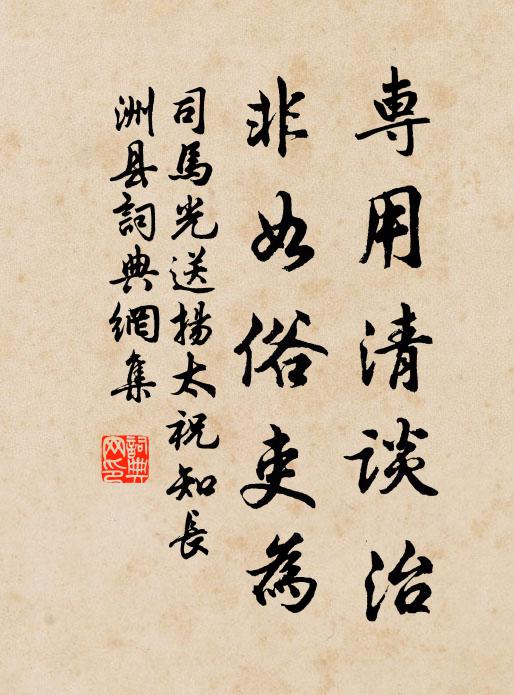 専用清談治
非如俗吏為
司馬光送揚太祝知長
洲县詞典網集
詞典网印